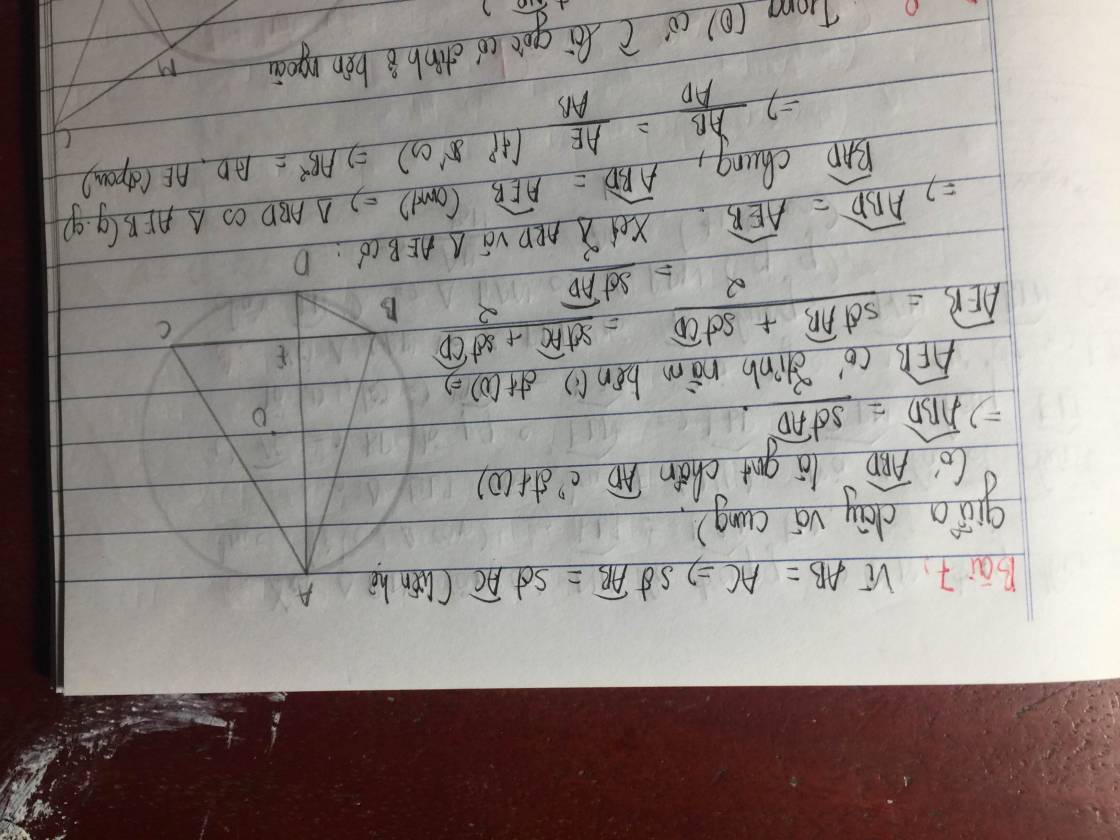 Bài 7, Vì AB = AC => sđ AB = sđ AC (liên hệ
giữa dây và cung).
Có ABD là gnt chắn AD c° đt(O)
=> ABD = sđ AD / 2.
AEB có đỉnh nằm bên (.) đt(O) =>
AEB = sđ AB + sđ CD / 2 = sđ AC + sđ CD / 2
= sđ AD / 2
=> ABD = AEB. Xét Δ ABD và Δ AEB có:
BAD chung, ABD = AEB (cmt) => Δ ABD ∽ Δ AEB (g.g)
=> AB / AD = AE / AB (tỉ số ∽) => AB² = AD. AE (đpcm)
Trong (O) có C là góc có đỉnh ở bên ngoài
A
O
E
C
B
D
C
M